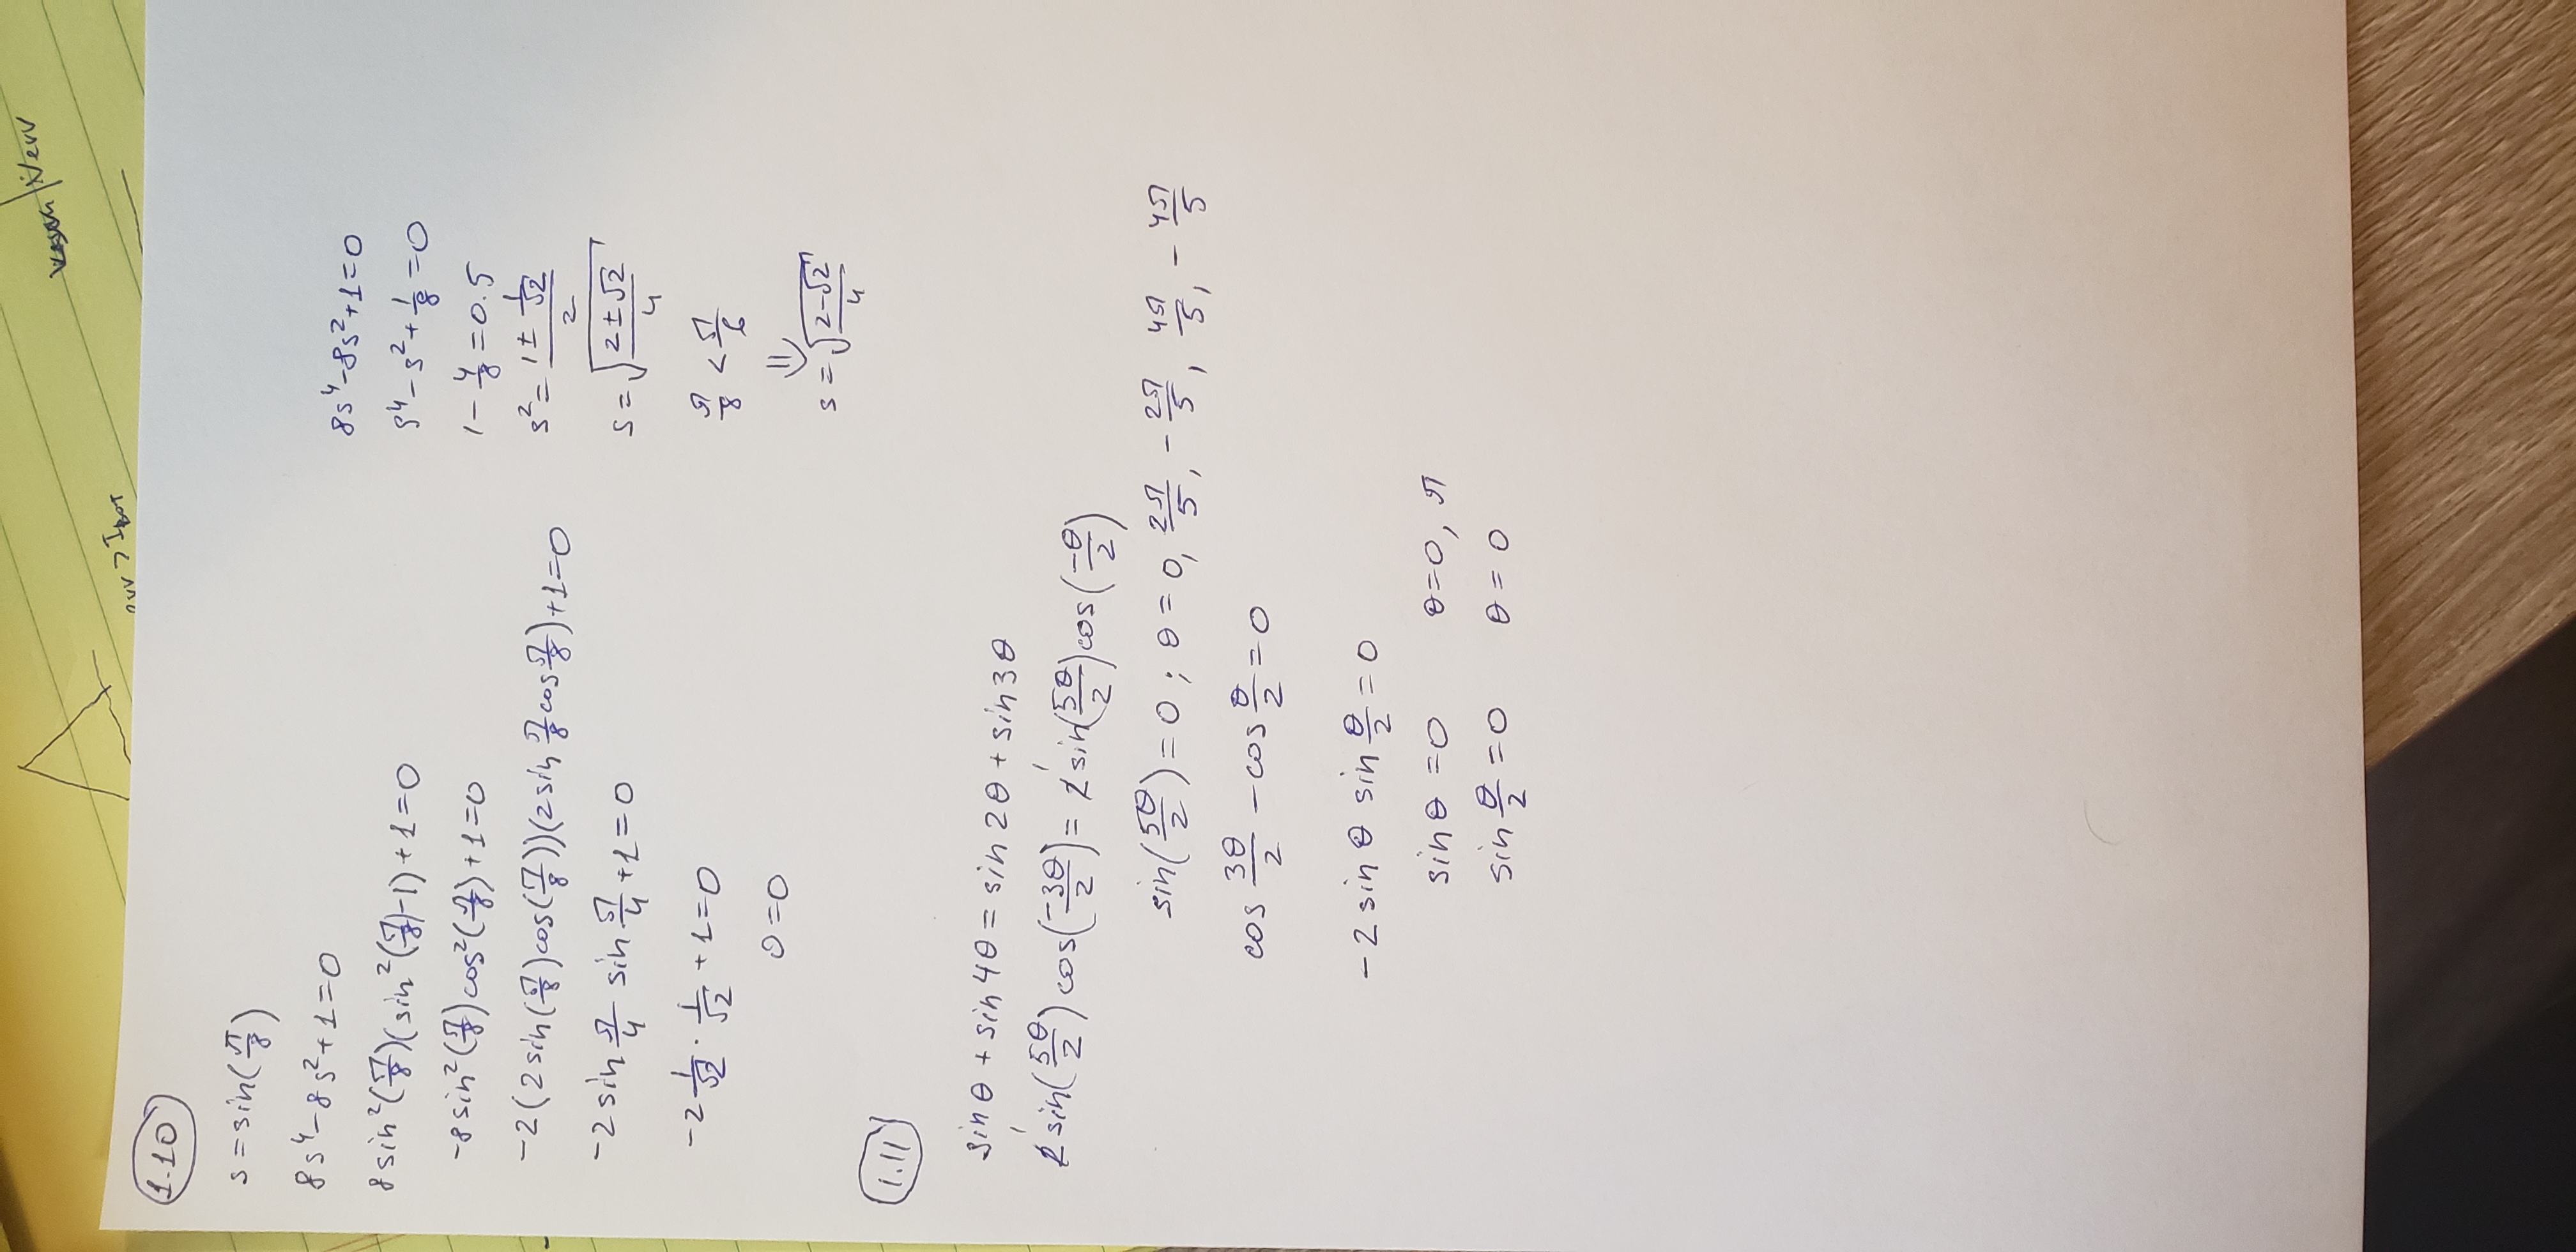 Verr
vv > I_BOT
1.10
s = sin(π/8)
8s⁴ - 8s² + 1 = 0
8 sin²(π/8)(sin²(π/8) - 1) + 1 = 0
-8 sin²(π/8) cos²(π/8) + 1 = 0
-2(2 sin(π/8) cos(π/8))(2 sin π/8 cos π/8) + 1 = 0
-2 sin π/4 sin π/4 + 1 = 0
-2 1/√2 · 1/√2 + 1 = 0
0 = 0
8s⁴ - 8s² + 1 = 0
s⁴ - s² + 1/8 = 0
1 - 4/8 = 0.5
s² = (1 ± 1/√2)/2
s = √((2 ± √2)/4)
π/8 < π/6
⇓
s = √((2 - √2)/4)
1.11
sin θ + sin 4θ = sin 2θ + sin 3θ
2 sin(5θ/2) cos(-3θ/2) = 2 sin(5θ/2) cos(-θ/2)
sin(5θ/2) = 0 ; θ = 0, 2π/5, -2π/5, 4π/5, -4π/5
cos 3θ/2 - cos θ/2 = 0
-2 sin θ sin θ/2 = 0
sin θ = 0 θ = 0, π
sin θ/2 = 0 θ = 0